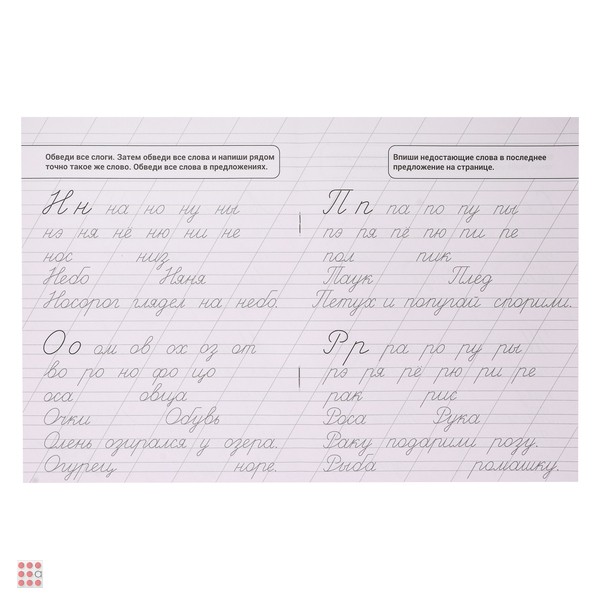 Обведи все слоги. Затем обведи все слова и напиши рядом
точно такое же слово. Обведи все слова в предложениях.
Н н на но ну ны
нэ ня нё ню ни не
нос низ
Небо Няня
Носорог глядел на небо.
О о ом ов ох оз от
во ро но фо цо
оса овца
Очки Обувь
Олень озирался у озера.
Огурец норе.
Впиши недостающие слова в последнее
предложение на странице.
П п па по пу пы
пэ пя пё пю пи пе
пол пик
Паук Плед
Петух и попугай спорили.
Р р ра ро ру ры
рэ ря рё рю ри ре
рак рис
Роса Рука
Раку подарили розу.
Рыба ромашку.